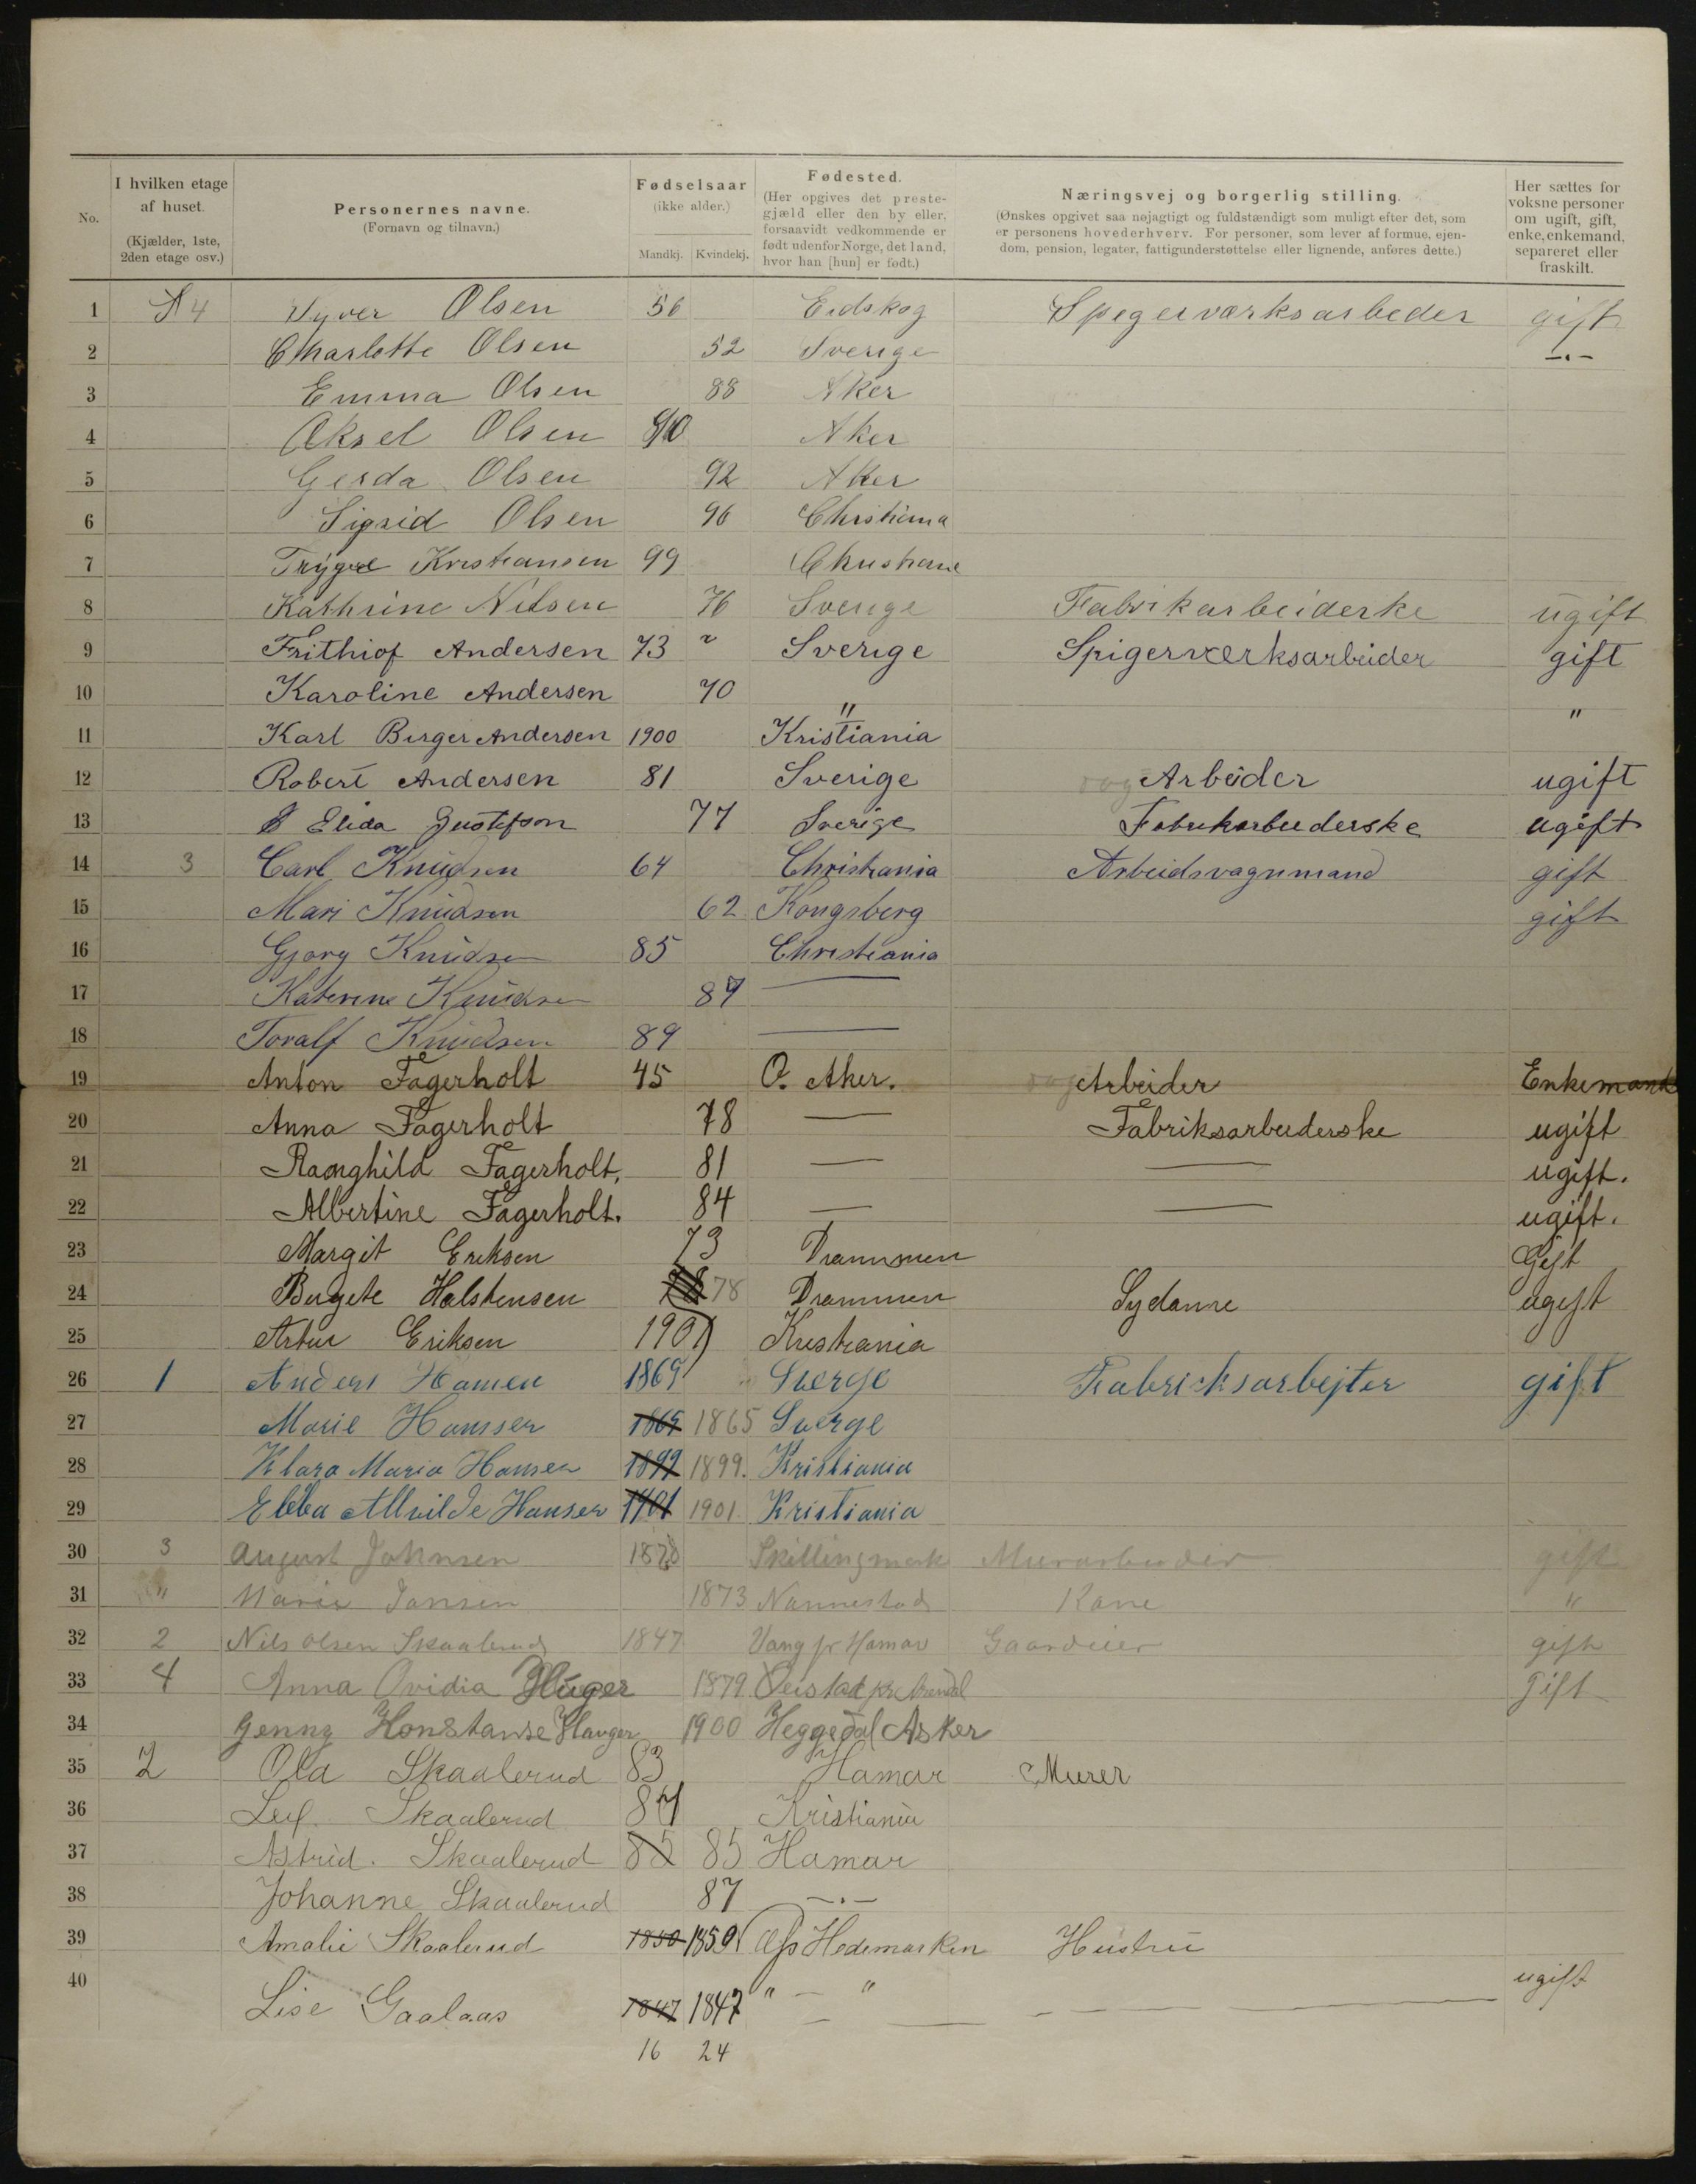 No.
I hvilken etage af huset.
(Kjælder, 1ste, 2den etage osv.)
Personernes navne.
(Fornavn og tilnavn.)
Fødselsaar
(ikke alder.)
Mandkj. Kvindekj.
Fødested.
(Her opgives det prestegjæld eller den by eller, forsaavidt vedkommende er født udenfor Norge, det land, hvor han [hun] er født.)
Næringsvej og borgerlig stilling.
(Ønskes opgivet saa nøjagtigt og fuldstændigt som muligt efter det, som er personens hovederhverv. For personer, som lever af formue, ejendom, pension, legater, fattigunderstøttelse eller lignende, anføres dette.)
Her sættes for voksne personer om ugift, gift, enke, enkemand, separeret eller fraskilt.
1 4 Olsen 56 Eidskog Spegerværksarbeder gift
2 Charlotte Olsen 52 Sverige -.-
3 Emma Olsen 88 Aker
4 Aksel Olsen 90 Aker
5 Gerda Olsen 92 Aker
6 Sigrid Olsen 96 Christiania
7 Trygve Kristiansen 99 Christiania
8 Kathrine Nilsen 76 Sverige Fabrikarbeiderke ugift
9 Frithiof Andersen 73 " Sverige Spigerværksarbeider gift
10 Karoline Andersen 70 " "
11 Karl Birger Andersen 1900 Kristiania
12 Robert Andersen 81 Sverige Arbeider ugift
13 Elida Gustefson 77 Sverige Fabrikarbeiderske ugift
14 3 Carl Knudsen 64 Christiania Arbeidsvognmand gift
15 Mari Knudsen 62 Kongsberg gift
16 Gjorg Knudsen 85 Christiania
17 Katerine Knudsen 87 —
18 Toralf Knudsen 89 —
19 Anton Fagerholt 45 O. Aker. Arbeider Enkemand
20 Anna Fagerholt 78 — Fabriksarbeiderske ugift
21 Ranghild Fagerholt, 81 — — ugift.
22 Albertine Fagerholt. 84 — — ugift.
23 Margit Eriksen 73 Drammen Gift
24 Birgete Halstensen 78 Drammen Sydame ugift
25 Artur Eriksen 1901 Kristiania
26 1 Anders Hansen 1869 Sverge Fabricksarbejter gift
27 Marie Hansser 1865 1865 Sverge
28 Klara Maria Hansen 1899 1899. Kristiania
29 Ebba Allvilde Hansen 1901 1901 Kristiania
30 3 August Johnsen 1878 Skillingmark Murarbeider gift
31 " Marie Jansen 1873 Nannestad Kone "
32 2 Nils Olsen Skaalerud 1847 Vang pr Hamar Gaardeier gift
33 4 Anna Ovidia Hauger 1879 Gift
34 Jenny Konstanse Hauger 1900 Heggedal Asker
35 2 Ola Skaalerud 83 Hamar Murer
36 Leif. Skaalerud Kristiania
37 Astrid. Skaalerud 85 85 Hamar
38 Johanne Skaalerud 87 -.-
39 Amalie Skaalerud 1850 1850 Hedemarken Hustru
40 Lise Gaalaas 1847 1847 " — " — ugift
16 24